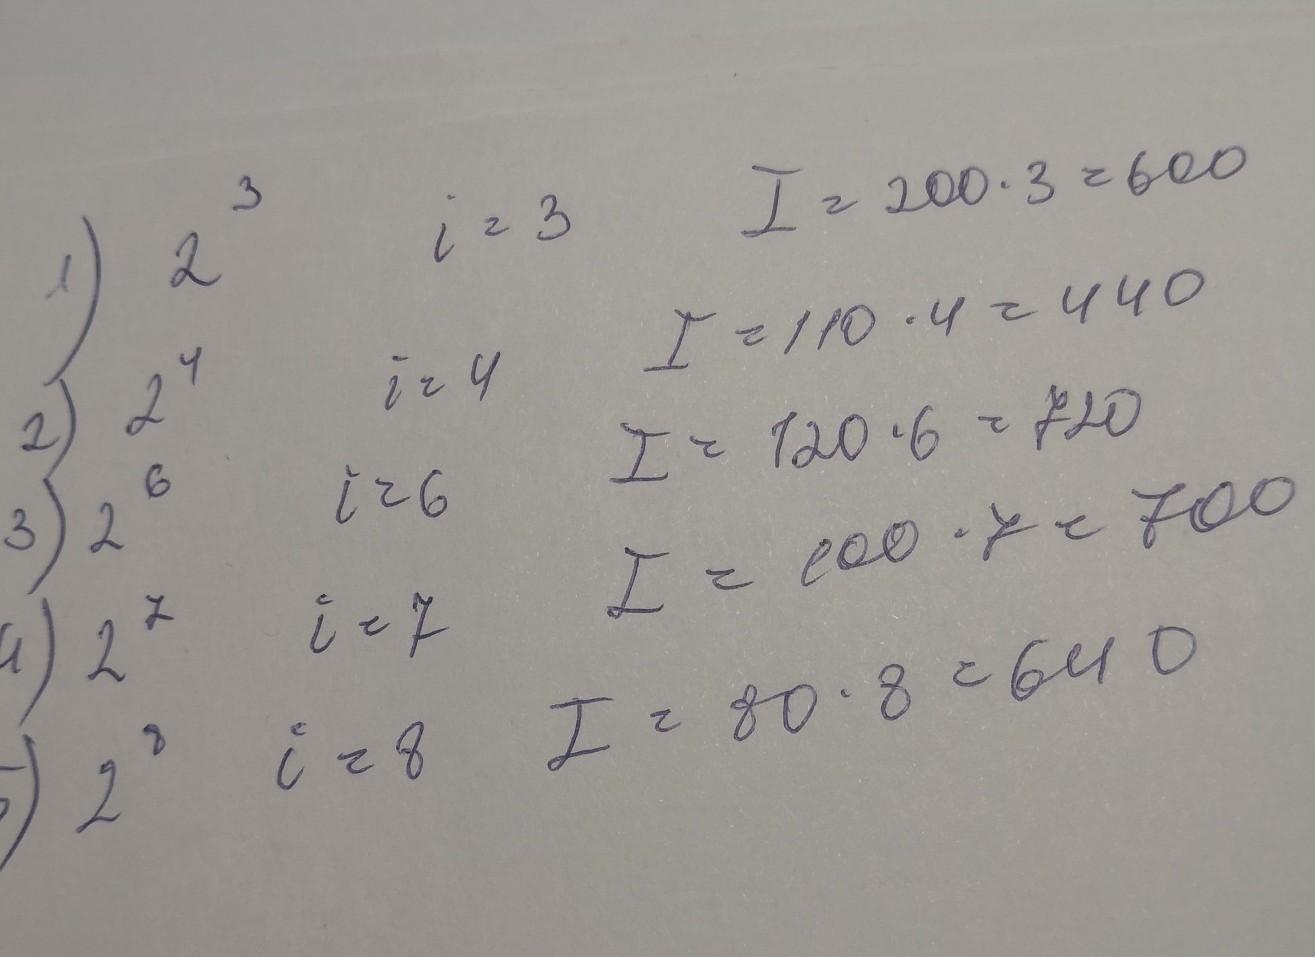 1) 2³ i = 3 I = 200 · 3 = 600
2) 2⁴ i = 4 I = 110 · 4 = 440
3) 2⁶ i = 6 I = 120 · 6 = 720
4) 2⁷ i = 7 I = 100 · 7 = 700
5) 2⁸ i = 8 I = 80 · 8 = 640